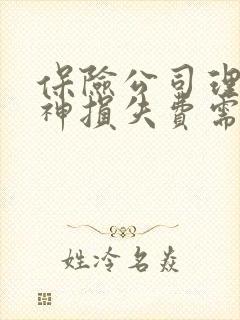 保險公司理
神損失費需
姓冷名焱